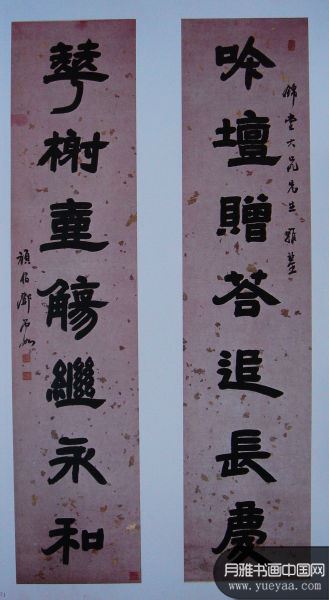 錦堂大兄先生雅鑒
吟壇贈荅追長慶
華榭壺觴繼永和
頑伯鄧石如
月雅书画中国网
www.yueyaa.com